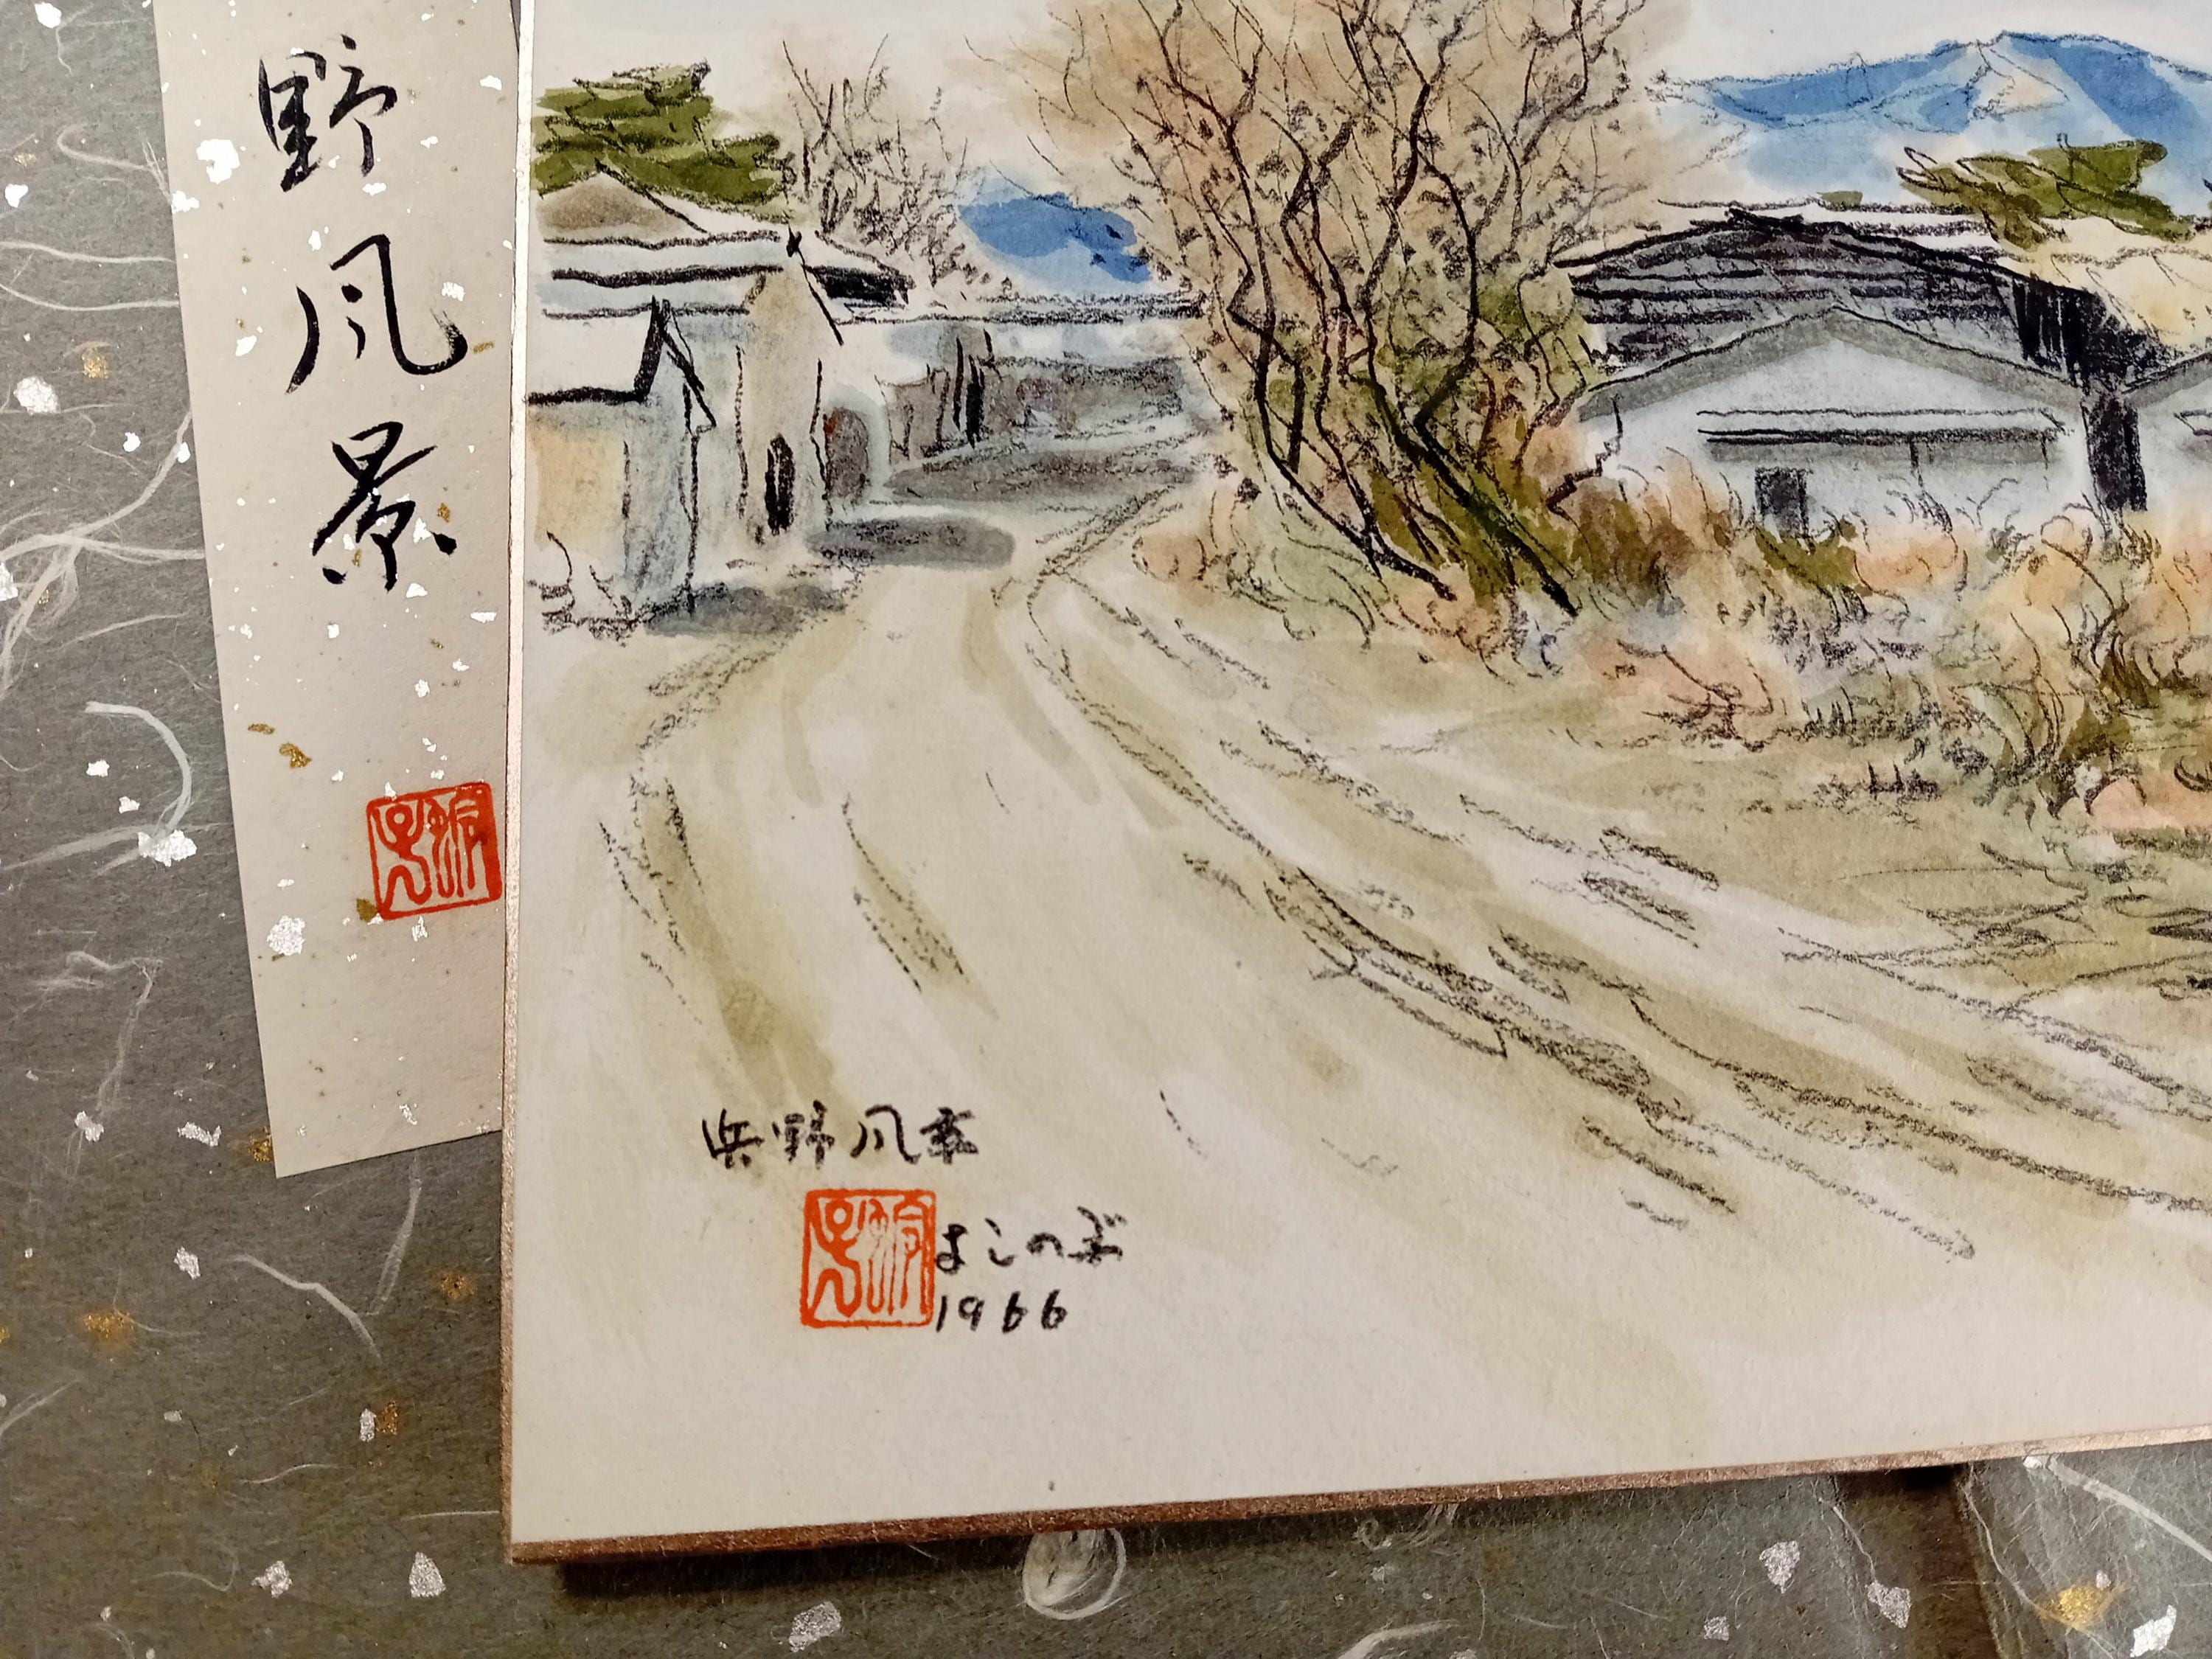 野風景
浜野風景
よしのぶ
1966